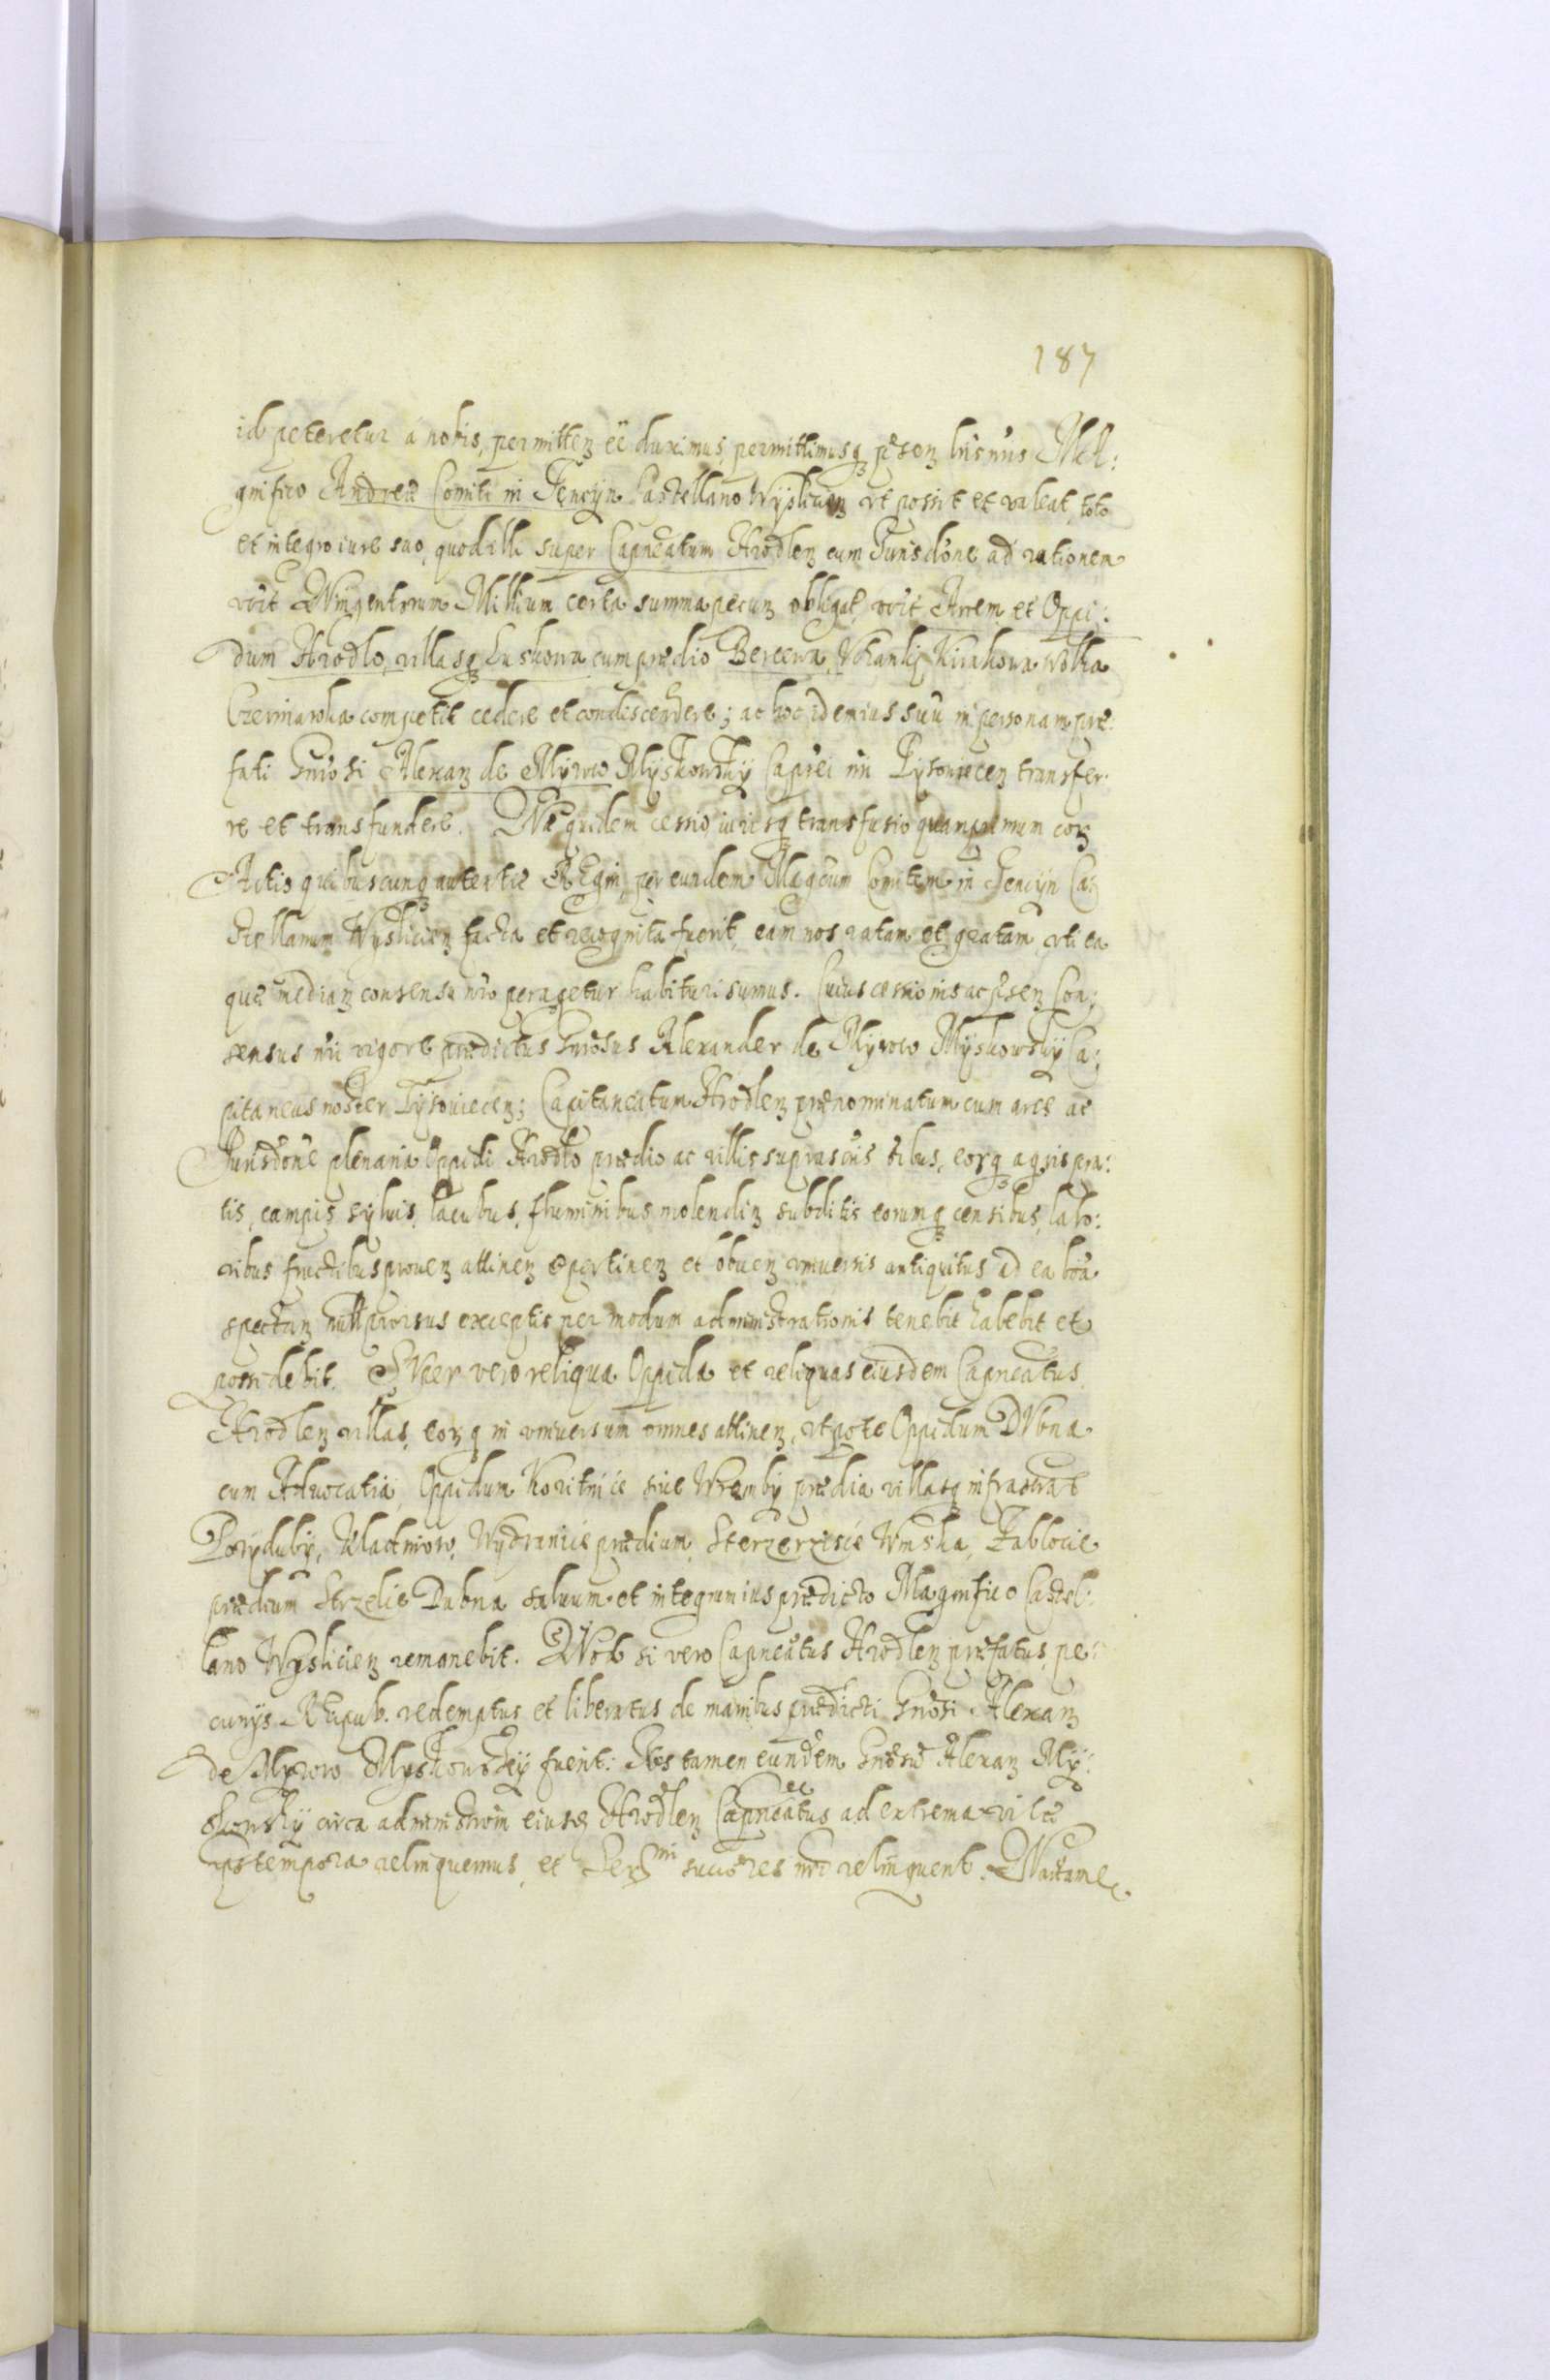 187
id peteretur a nobis, permitten ēē duximus, permittimusq pn̄sen lris nr̄is Ma:
gnifico Andreæ Comiti in Tencÿn Castellano Wÿslicien ut possit et valeat toto
et integro iure suo, quod illi super Capneatum Hrodlen cum Jurisdōne ad rationem
Qvingentorum Millium certa summa pecun obligat, Arcem et Oppi:
dum Hrodlo, villasq Luskowa cum prædio Berezwa Kirakowa Wolka
competit cedere et condiscendere; ac hoc idem ius suū in personam præ:
fati Gnr̄osi Alexan de Mÿrow Mÿskowskÿ Capnei nr̄i Tÿsowiecen transfer:
re et transfundere. QVæ quidem cessio, iurisq transfusio quamprimum corā
Actis quibuscunq autenticis REgni, per eundem Magcum Comitem in Tencÿn Ca:
stellanum Wÿslicien facta et recognita fuerit, eam nos ratam et gratam, uti ea
quæ median consensu nr̄o peragetur habituri sumus. Cuius cessionis ac pn̄sen Con:
sensus nr̄i vigore prædictus Gnr̄osus Alexander de Mÿrow Mÿskowskÿ Ca:
pitaneus noster Tÿsowiecen; Capitaneatum Hrodlen prænominatum cum arce ac
Jurisdōne plenaria Oppidi Hrodło prædio ac villis suprascriis oībus, eorq agris pra:
tis, campis, sÿluis, lacubus, fluminibus molendin subditis eorumq censibus, labo:
ribus fructibus prouen attinen & pertinen et obuen vniuersis antiquitus ad ea bona
spectan null prorsus exceptis per modum administrationis tenebit habebit et
possidebit. SVper vero reliqua Oppida et reliquas eiusdem Capneatus
Hrodlen villas, eorq in vniuersum omnes attinen, utpote Oppidum DVbna
cum Aduocatia, Oppidum Koritnice siue Wrembÿ prædia villasq infrascrat
Porÿdubÿ, Klactniow, Wÿdranice prædium, Zablocie
prædium Strzelie Dubna saluum et integrum ius prædicto Magnifico Castel:
lano Wÿslicien remanebit. QVod si vero Capneatus Hrodlen præfatus, pe:
cunÿs REipub. redemptus et liberatus de manibus prædicti Gnr̄osi Alexan
de Mÿrow Mÿskowskÿ fuerit: Nos tamen eundem Gnr̄osū Alexan Mÿ:
skowskÿ circa administrōm eiusd Hrodlen Capneatus ad extrema vitæ
ei
ips tempora relinquemus, et Sermi succēres nr̄i relinquent. QVa tamen